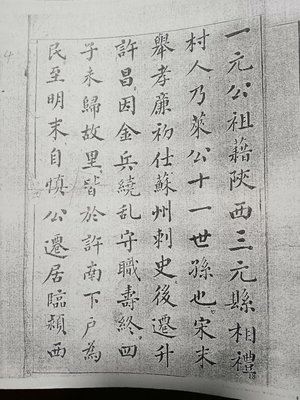 一元公祖藉陝西三元縣相禮
村人乃萊公十一世孫也宋末
舉孝廉初仕蘇州刺史後遷升
許昌因金兵繞乱守職壽終四
子未歸故里皆於許南下户為
民至明末自慎公遷居臨潁西